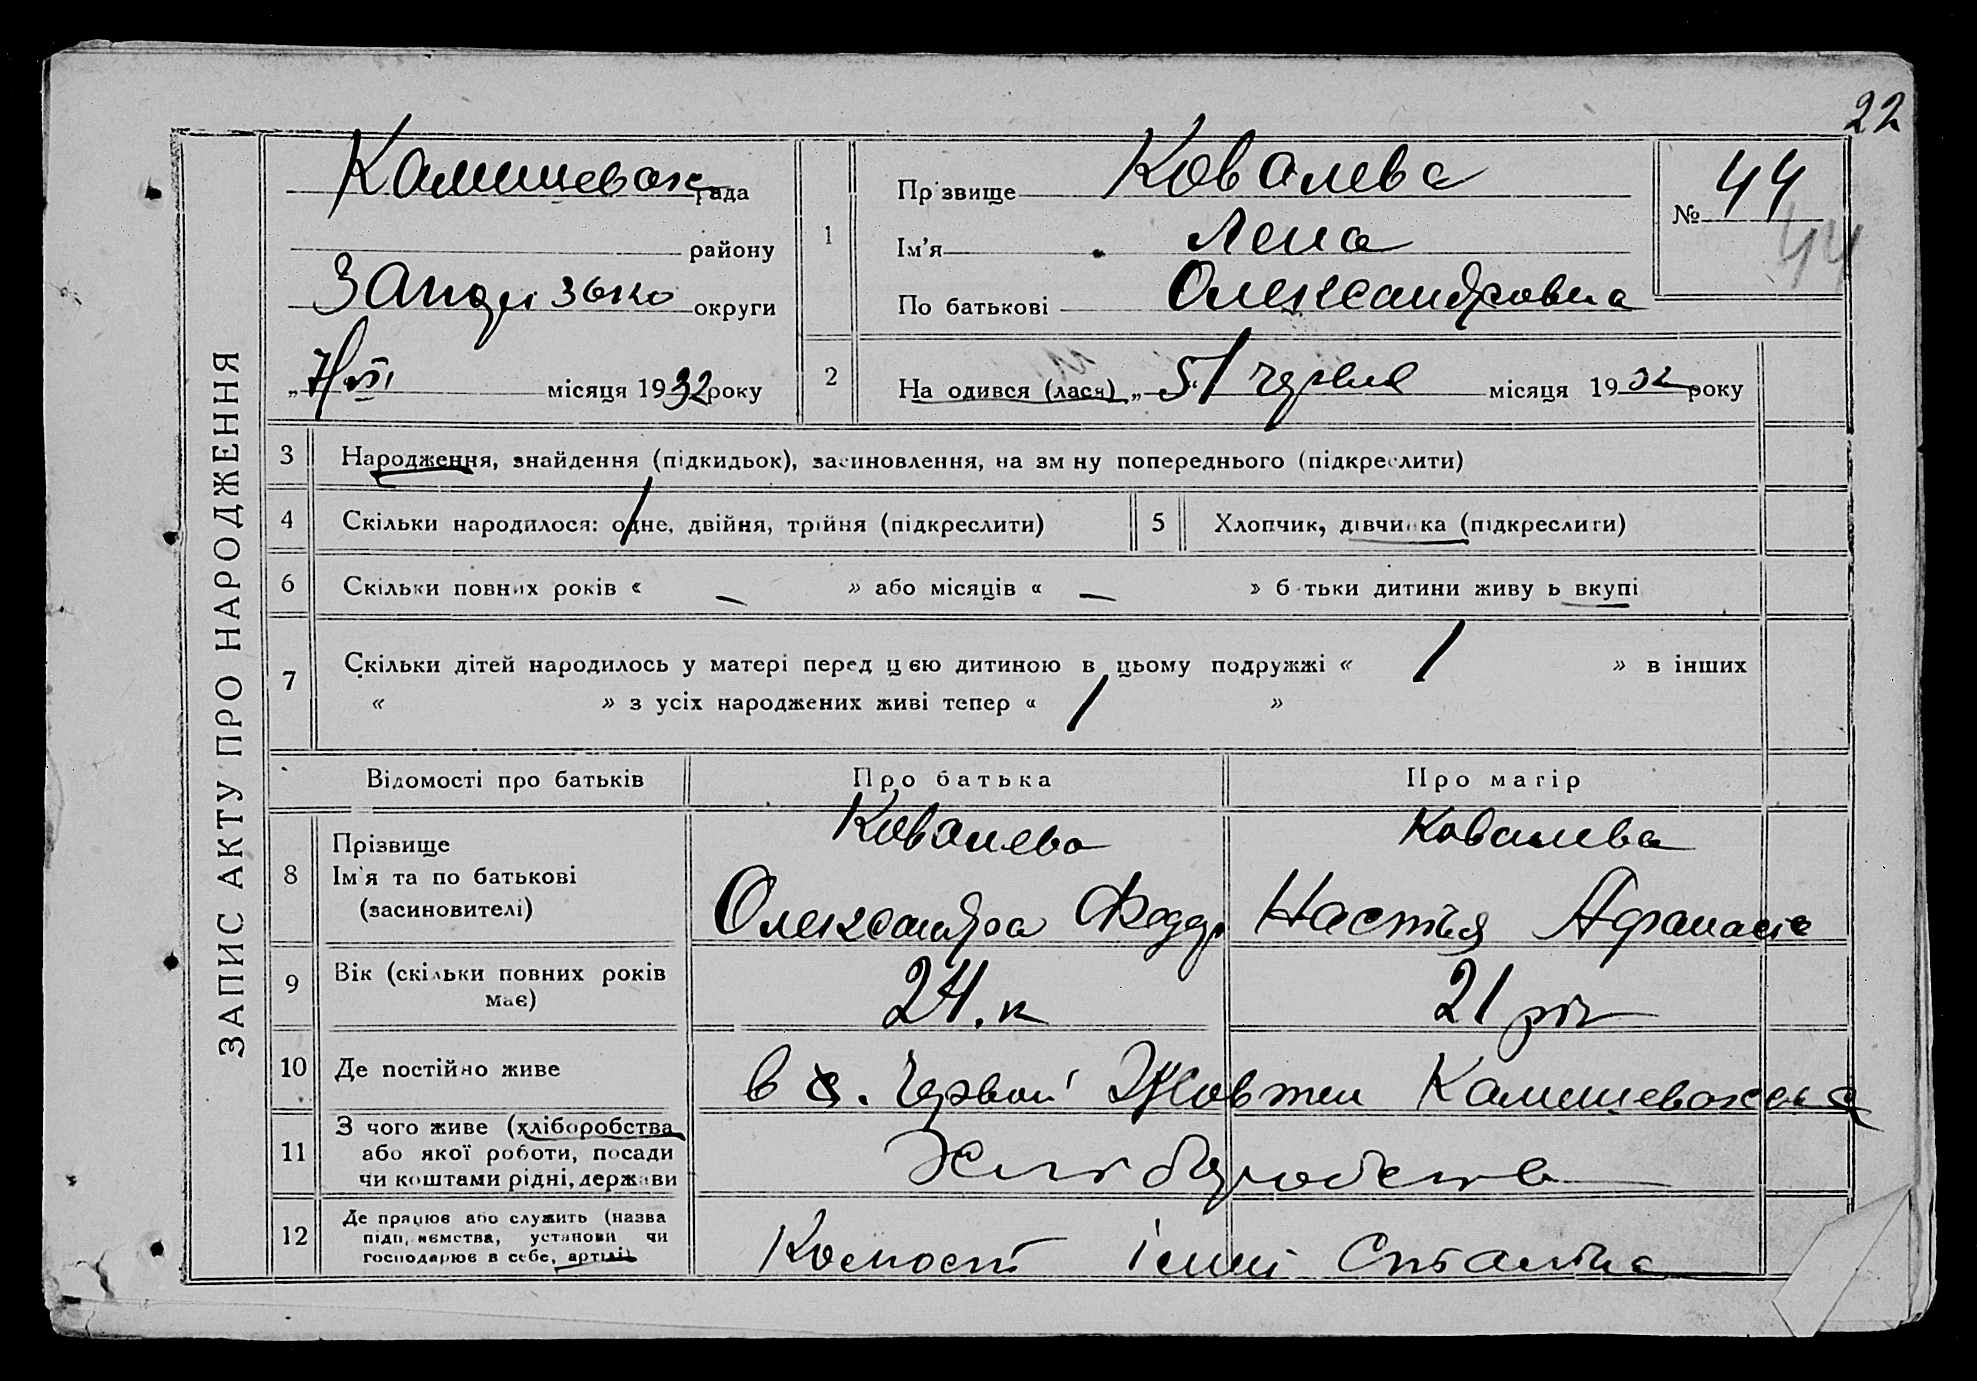 22
ЗАПИС АКТУ ПРО НАРОДЖЕННЯ
Камишеваж рада
району
округи
" 7/VII місяця 1932 року
1
Пр звище Ковалева
Ім'я Лена
По батькові Олександровна
№ 44
44
2
На одився (лася) „ 5/ червня місяця 1932 року
3 Народження, знайдення (підкидьок), засиновлення, на зм ну попереднього (підкреслити)
4 Скільки народилося: одне, двійня, трійня (підкреслити)
5 Хлопчик, дівчинка (підкреслити)
6 Скільки повних років « — » або місяців « — » б тьки дитини живу ь вкупі
7 Скільки дітей народилось у матері перед цією дитиною в цьому подружжі « / » в інших
« » з усіх народжених живі тепер « / »
Відомості про батьків
Про батька
Про матір
8 Прізвище
Ім'я та по батькові
(засиновителі)
Ковалева
Олександра Федор
Ковалева
Настья Афанасіе
9 Вік (скільки повних років
має)
24. к
21 рік
10 Де постійно живе
в с. Червоні Жовтен Камишеваська
11 З чого живе (хліборобства
або якої роботи, посади
чи коштами рідні, держави
Хліборобства
12 Де працює або служить (назва
підприємства, установи чи
господарює в себе, артілі)
імні Сталіна